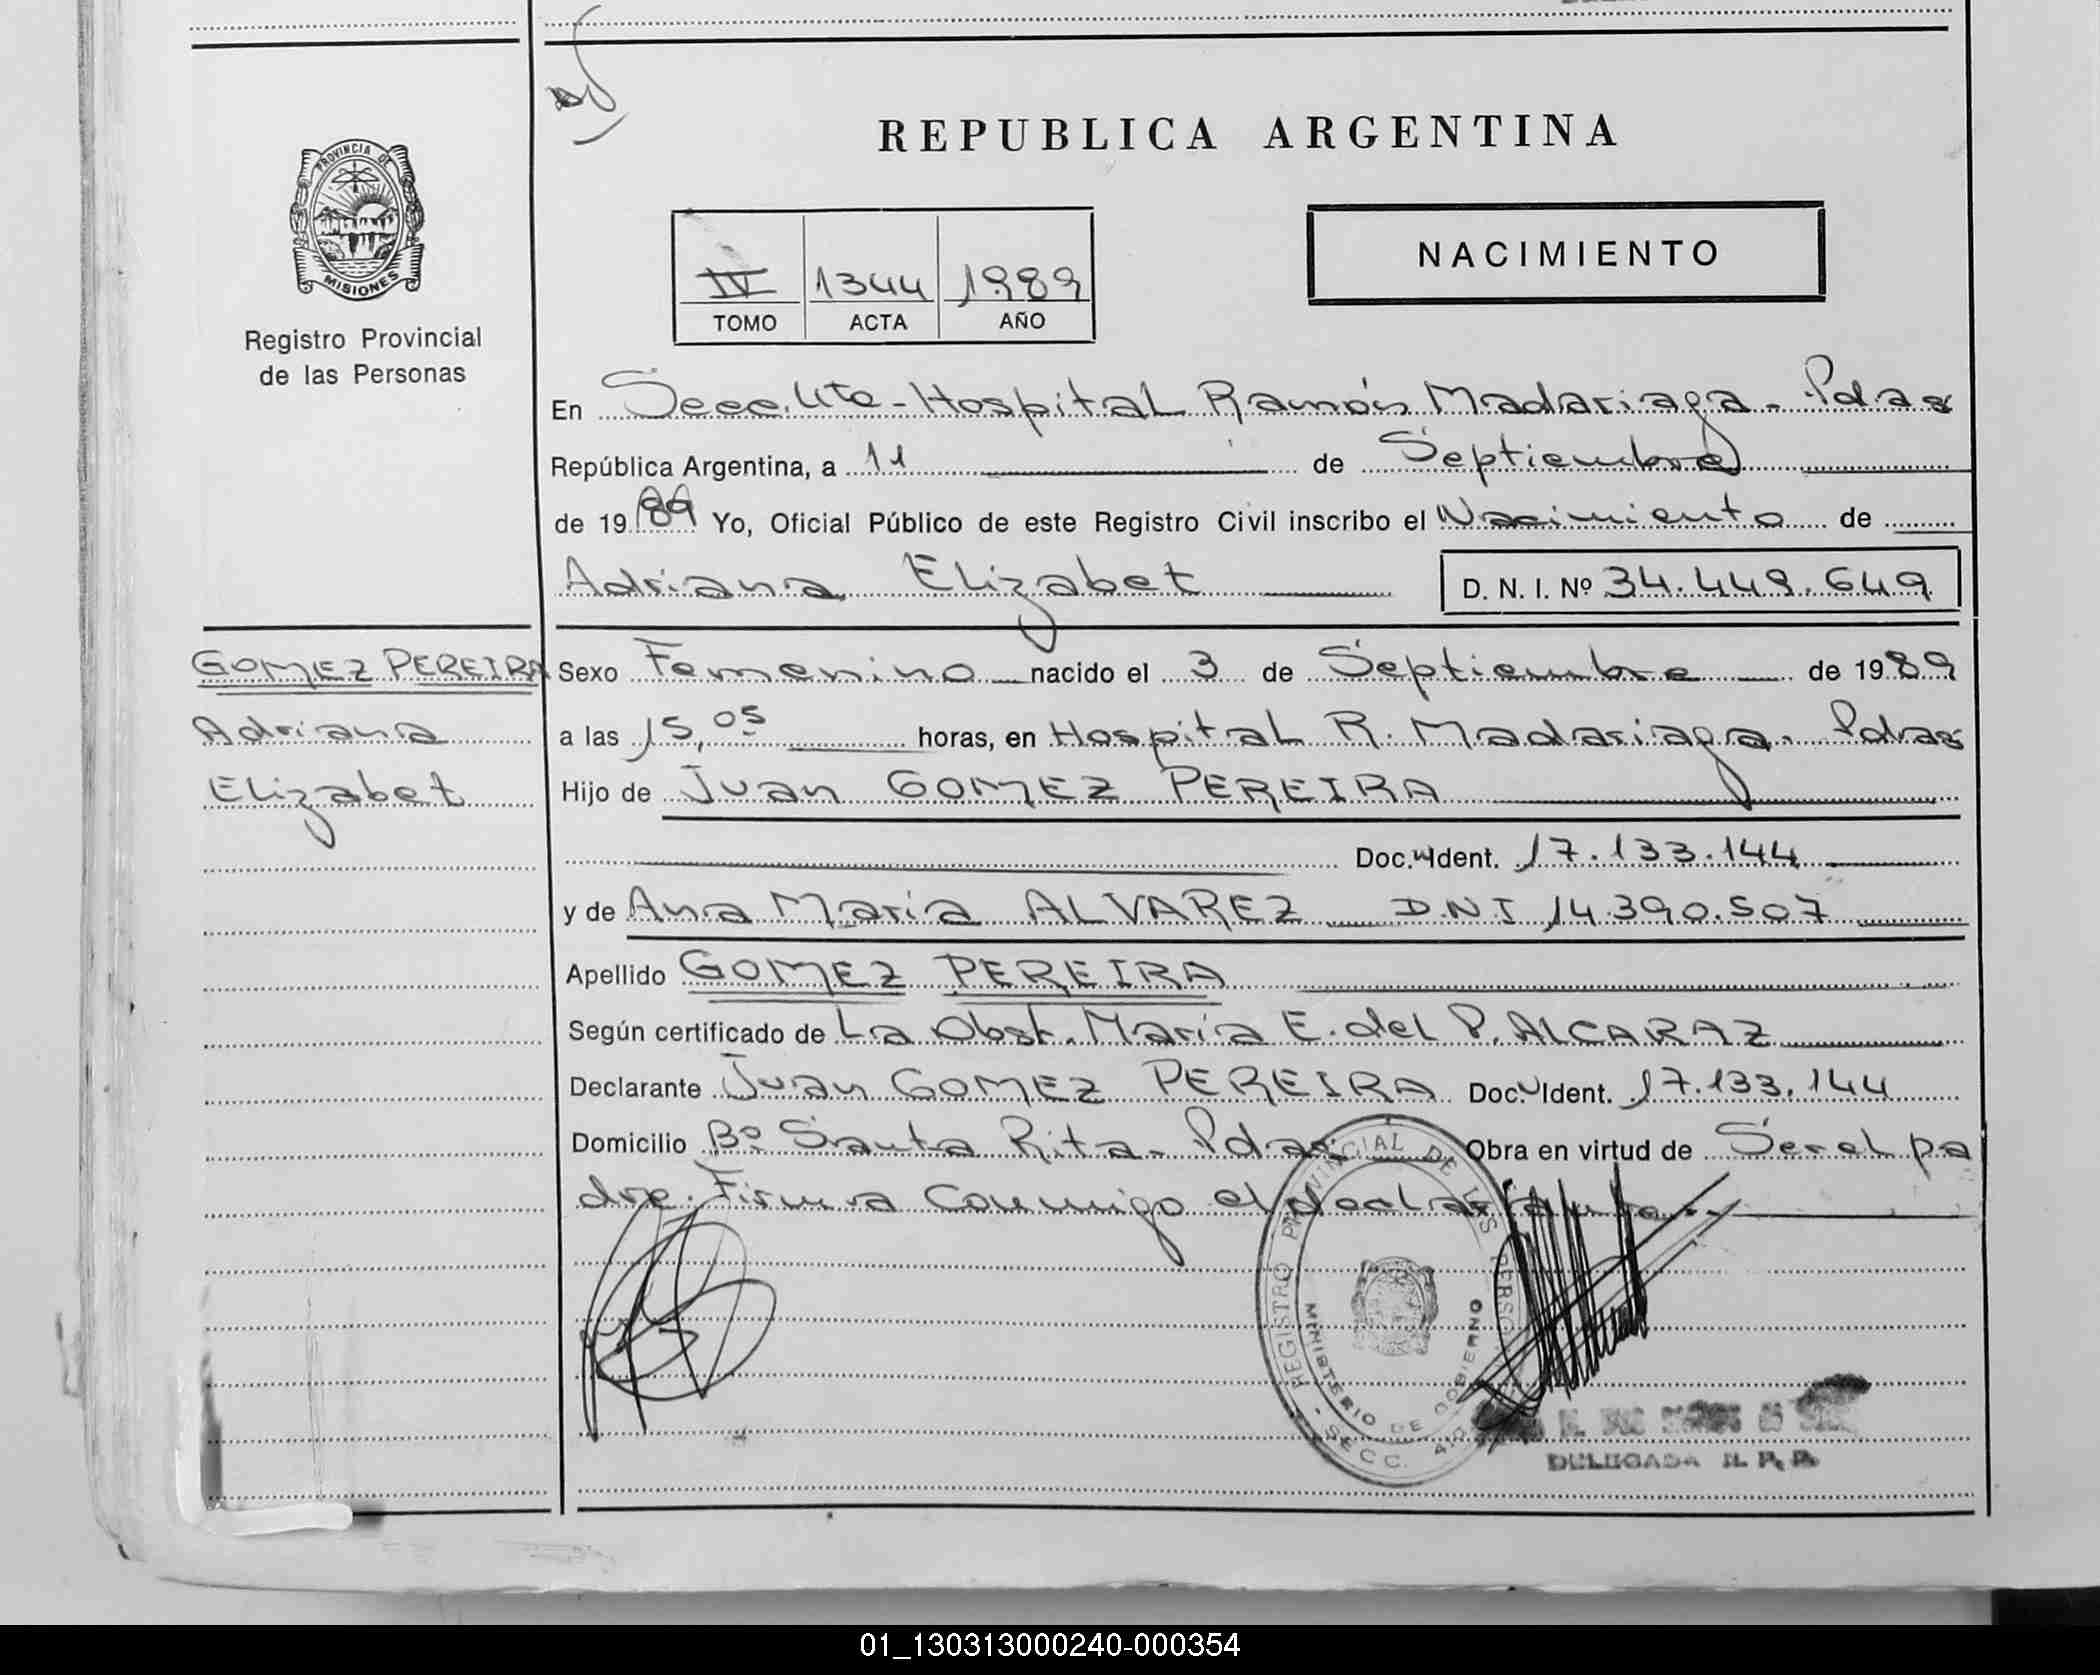 REPUBLICA ARGENTINA
PROVINCIA DE
MISIONES
Registro Provincial
de las Personas
NACIMIENTO
IV 1344 1989
TOMO ACTA AÑO
En Secc. 4ta - Hospital Ramón Madariaga - Pdas
República Argentina, a 11 de Septiembre
de 1989 Yo, Oficial Público de este Registro Civil inscribo el Nacimiento de
Adriana Elizabet D. N. I. Nº 34.449.649
GOMEZ PEREIRA
Adriana
Elizabet
Sexo Femenino nacido el 3 de Septiembre de 1989
a las 15,05 horas, en Hospital R. Madariaga. Pdas
Hijo de Juan GOMEZ PEREIRA
Doc. Ident. 17.133.144
y de Ana María ALVAREZ D.N.I 14.390.507
Apellido GOMEZ PEREIRA
Según certificado de La Obst. María E. del P. ALCARAZ
Declarante Juan GOMEZ PEREIRA Doc. Ident. 17.133.144
Domicilio Bº Santa Rita - Pdas Obra en virtud de Ser el pa
dre. Firma Conmigo el Declarante.
REGISTRO PROVINCIAL DE LAS
MINISTERIO DE GOBIERNO
SECC.
DELEGADA R. P. P.
01_130313000240-000354